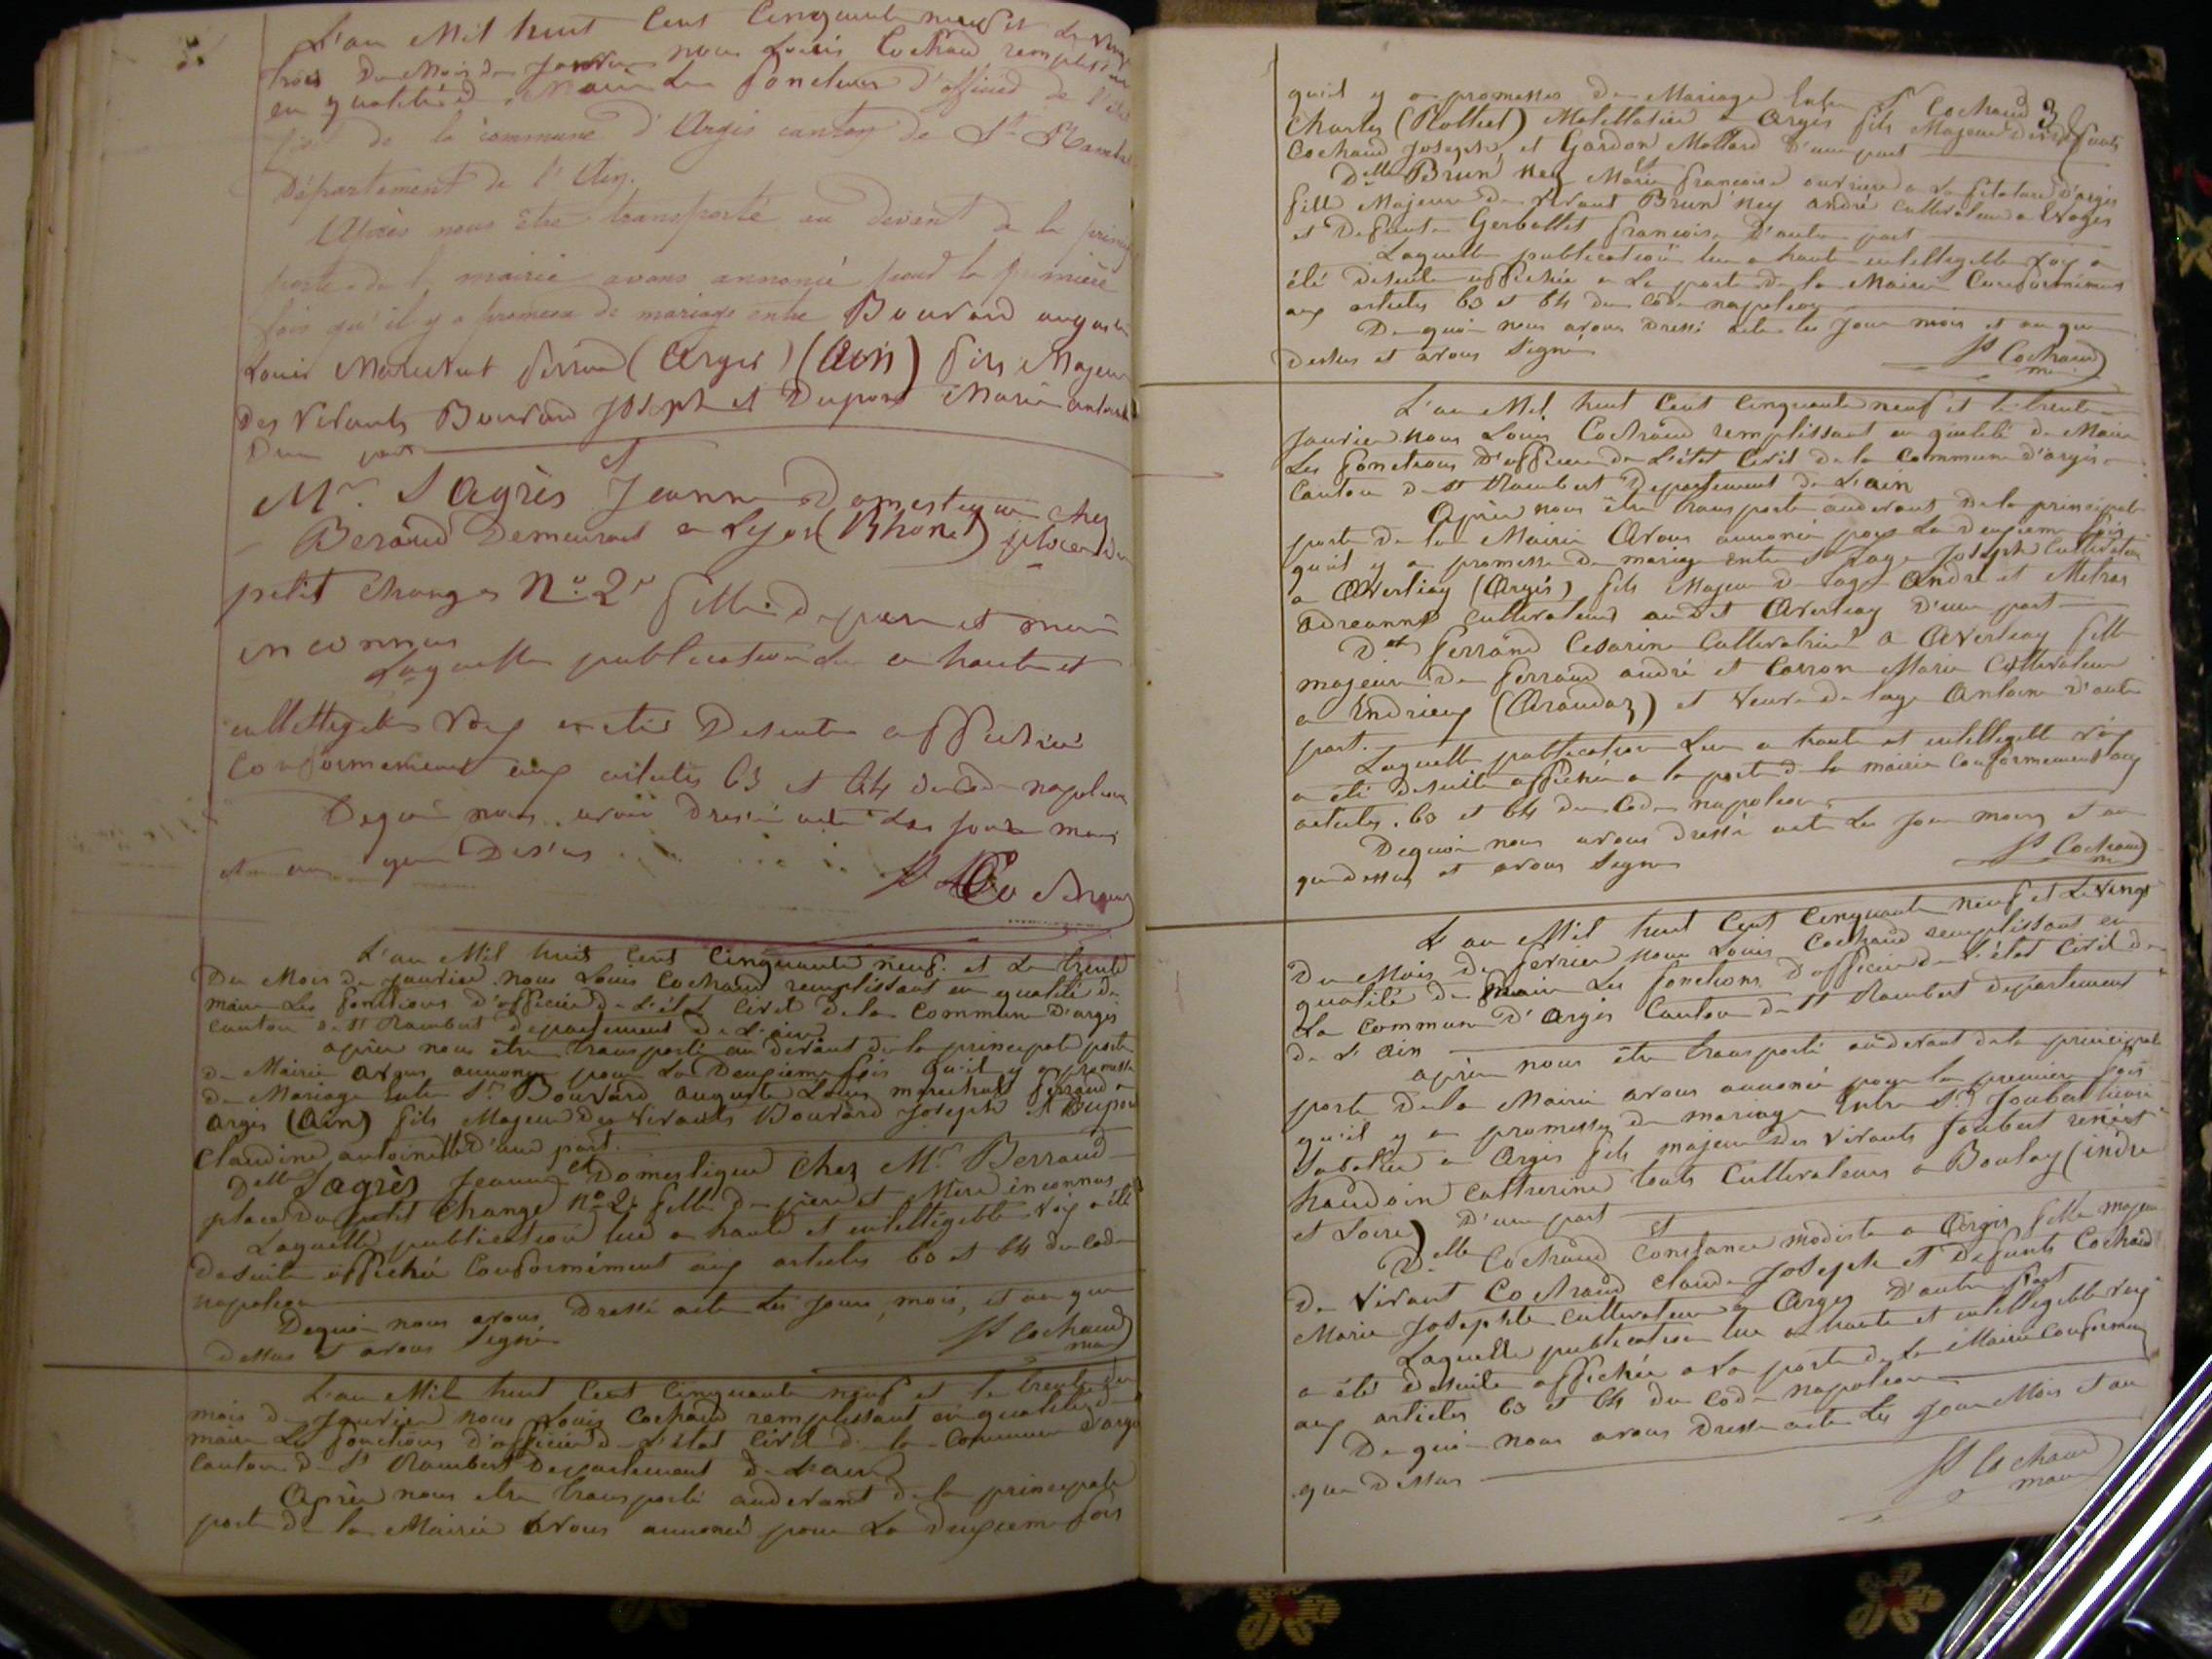 L'an Mil huit Cent Cinquante neuf et le vingt
trois Du Mois de Janvier nous Louis Cochaud remplissant
en qualité de Maire les fonctions d'officier de l'état
civil de la commune d'Argis canton de St Rambert
Département de l'Ain.
Après nous être transporté au devant de la principale
porte de la mairie avons annoncé pour la première
fois qu'il y a promesse de mariage entre Bouvard auguste
Louis Marechal ferrand (Argis) (Ain) fils Majeur
Des Vivants Bouvard Joseph et Dupont Marie antoinette
D'une part
et
Mr. Sagrès Jeanne Domestique chez
Beraud Demeurant a Lyon (Rhone) place du
petit Change No. 2 fille de père et mère
inconnus
Laquelle publication lue a haute et
intelligible Voix a été Desuite affichée
Conformément aux articles 63 et 64 du Code napoléon
Dequoi nous avons dressé acte les jour mois
et an que Dessus
Ls Cochaud
L'an Mil huit Cent Cinquante neuf. et le trente
Du Mois de Janvier nous Louis Cochaud remplissant en qualité de
maire Les fonctions d'officier de L'état Civil de la Commune D'argis
Canton de St Rambert Departement De L'ain
après nous être transporté au devant de la principale porte
de Mairie avons annoncé pour La Deuxieme fois qu'il y a promesse
de Mariage Entre Sr. Bouvard auguste Louis marechal ferrand a
Argis (Ain) fils Majeur Des Vivants Bouvard Joseph et Dupont
Claudine antoinette D'une part.
et
Delle Sagrès Jeanne Domestique Chez Mr. Berraud
place du petit Change No 2. fille De père et Mère inconnus
Laquelle publication lue a haute et intelligible Voix a été
Desuite affichée Conformément aux articles 63 et 64 du Code
napoleon
Dequoi nous avons Dressé acte Les jour, mois, et an que
dessus et avons Signé
Ls Cochaud
maire
L'an Mil huit Cent Cinquante neuf et le trente du
mois de Janvier nous Louis Cochaud remplissant en qualité de
maire Les fonctions d'officier de L'état Civil de la Commune d'argis
Canton de St Rambert Departement de L'ain
Après nous etre transporté audevant de la principale
porte de la Mairie avons annoncé pour La deuxieme fois
3
qu'il y a promesses de Mariage Entre Sr Cochaud
Charles (Rolliet) Matellatier a Argis fils Majeur Des défunts
Cochaud Joseph et Gardon Mollard D'une part
et
Delle Brun Ney Marie françoise ouvrière a La filature D'argis
fille Majeure De Vivant Brun ney andré Cultivateur a Evoges
et Defunte Gerbollet françoise D'autre part
Laquelle publication lue a haute intelligible Voix a
été Desuite affichée a La porte de la Mairie Conformément
aux articles 63 et 64 du Code napoleon
De quoi nous avons Dressé acte les Jour mois et an que
dessus et avons Signé
Ls Cochaud
maire
L'an Mil huit Cent Cinquante neuf et le trente
Janvier nous Louis Cochaud remplissant en qualité de Maire
Les fonctions D'officier de L'état Civil de la Commune d'argis
Canton de St Rambert Departement de L'ain
Après nous être transporté audevant de la principale
porte de la Mairie Avons annoncé pour La deuxieme fois
qu'il y a promesse de mariage entre Sr Lage Joseph Cultivateur
a Averliaz (Argis) fils Majeur de Lage André et Metras
adreanne Cultivateurs audit Averliaz D'une part
Delle ferrand Cesarine Cultivatrice a Averliaz fille
majeure De ferrand andré et Carron Marie Cultivateur
a Indrieux (Arandaz) et Veuve de Lage Antoine D'autre
part.
Laquelle publication Lue a haute et intelligible Voix
a été Desuite affichée a la porte de la mairie conformement aux
articles. 63 et 64 du Code napoleon
Dequoi nous avons Dressé acte Les Jour mois et an
que dessus et avons Signé
Ls Cochaud
L'an Mil huit Cent Cinquante neuf et Le Vingt
Du Mois de fevrier nous Louis Cochaud remplissant en
qualité de Maire Les fonctions D'officier de L'état Civil de
La Commune D'Argis Canton de St Rambert Departement
de L'ain
après nous être transporté audevant de la principale
porte de la Mairie avons annoncé pour la premiere fois
qu'il y a promesses de mariage Entre Sr Joubert
Sabotier a Argis fils majeur Des Vivants Joubert
haudoin Catherine touts Cultivateurs a Boulay (indre
et Loire) D'une part
et
Delle Cochaud Constance modiste a Argis fille majeure
De Vivant Cochaud Claude Joseph et Defunte Cochaud
Marie Josephte cultivateur a Argis D'autre part
Laquelle publication lue a haute et intelligible Voix
a été desuite affichée a La porte de La Mairie Conformément
aux articles 63 et 64 du Code napoleon
De quoi nous avons Dressé acte Les Jour Mois et an
que Dessus
Ls Cochaud
maire